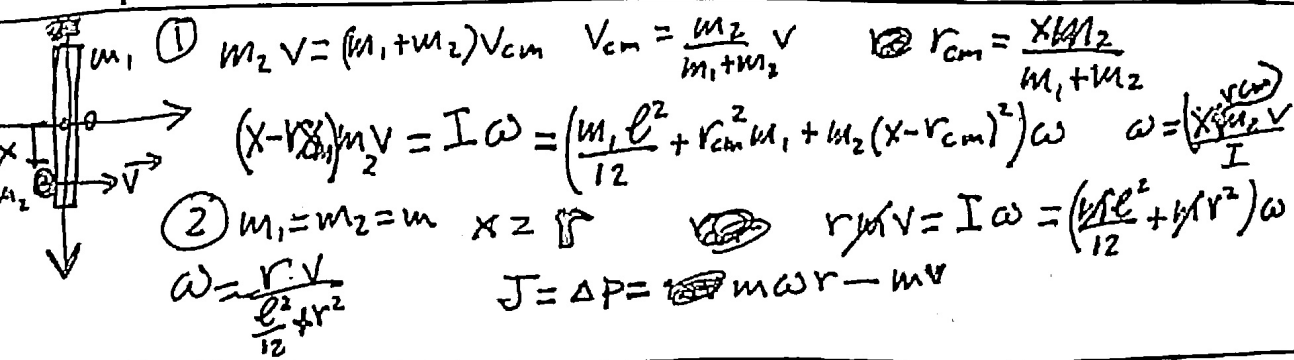 m₁ ① m₂ v = (m₁+m₂) Vcm Vcm = m₂/(m₁+m₂) v rcm = xm₂/(m₁+m₂)
x (x-rcm)m₂v = Iω = (m₁ℓ²/12 + rcm² m₁ + m₂(x-rcm)²)ω ω = (x-rcm)m₂v/I
m₂ v
② m₁=m₂=m x = r rmv = Iω = (mℓ²/12 + mr²)ω
ω = r·v/(ℓ²/12 + r²) J = Δp = mωr - mv